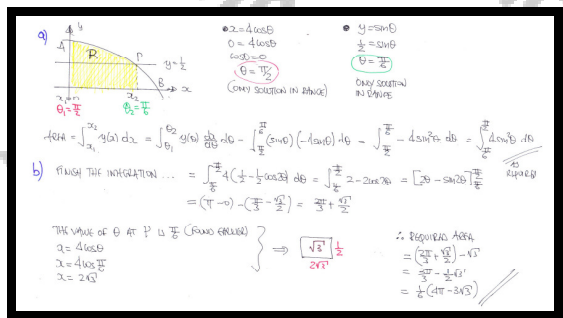 a)
y
A
R
P
y=1/2
B
x
x₁=0 x₂
θ₁=π/2 θ₂=π/6
• x=4cosθ
0=4cosθ
cosθ=0
θ=π/2
(ONLY SOLUTION IN RANGE)
• y=sinθ
1/2=sinθ
θ=π/6
ONLY SOLUTION
IN RANGE
AREA = ∫_{x₁}^{x₂} y(x) dx = ∫_{θ₁}^{θ₂} y(θ) dx/dθ dθ = ∫_{π/2}^{π/6} (sinθ)(-4sinθ) dθ = ∫_{π/2}^{π/6} -4sin²θ dθ = ∫_{π/6}^{π/2} 4sin²θ dθ
AS REQUIRED
b) FINISH THE INTEGRATION ... = ∫_{π/6}^{π/2} 4(1/2 - 1/2cos2θ) dθ = ∫_{π/6}^{π/2} 2-2cos2θ dθ = [2θ - sin2θ]_{π/6}^{π/2}
= (π-0) - (π/3 - √3/2) = 2π/3 + √3/2
THE VALUE OF θ AT P IS π/6 (FOUND EARLIER)
x=4cosθ
x=4cosπ/6
x=2√3
⇒ √3 1/2
2√3
∴ REQUIRED AREA
= (2π/3 + √3/2) - √3
= 2π/3 - 1/2√3
= 1/6(4π-3√3)